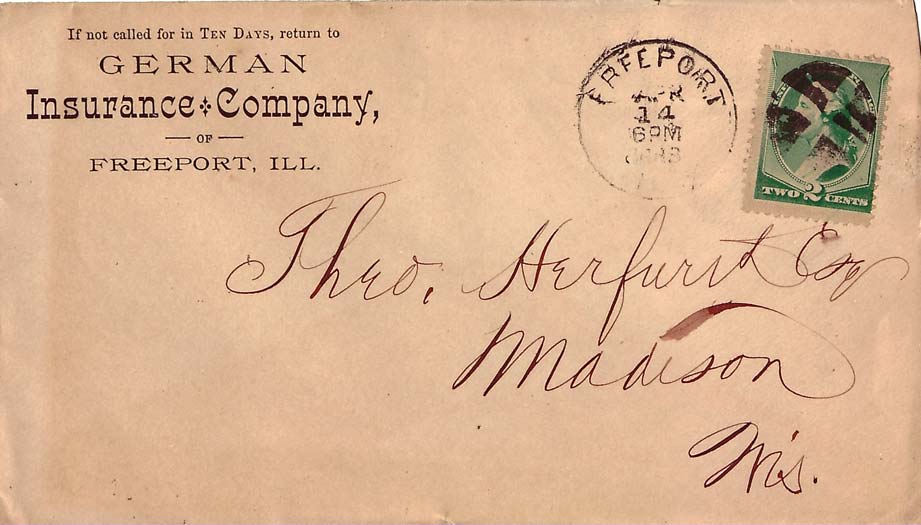 If not called for in TEN DAYS, return to
GERMAN
Insurance Company,
— OF —
FREEPORT, ILL.
FREEPORT
APR
14
6PM
TWO 2 CENTS
Theo. Herfurst Esq
Madison
Wis.